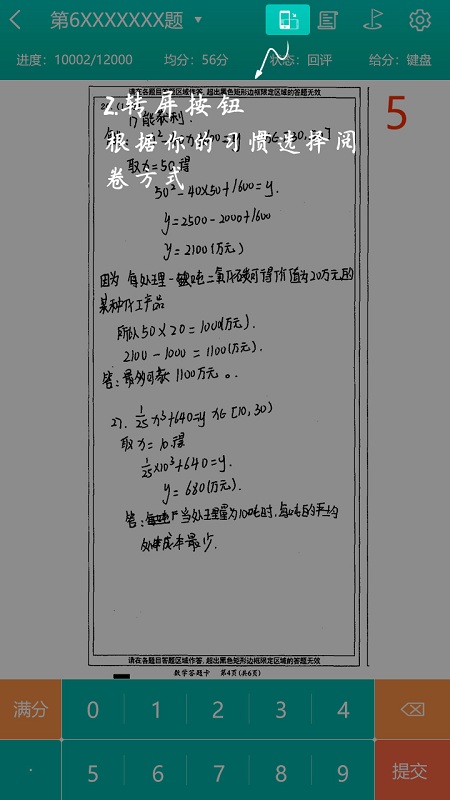 第6XXXXXXX题
进度：10002/12000 均分：56分 状态：回评 给分：键盘
请在各题目答题区域作答，超出黑色矩形边框限定区域的答案无效
5
2.转屏按钮
根据你的习惯选择阅
卷方式
1) 能获利.
取x=50得
50²-40×50+1600=y.
y=2500-2000+1600
y=2100(万元)
因为 每处理一吨二氧化碳可得价值为20万元的
某种化工产品
所以 50×20=1000(万元).
2100-1000=1100(万元).
答：最多可获1100万元。
2). 1/25 x³+640=y x∈[10,30)
取x=10得
1/25×10³+640=y.
y=680(万元).
答：当处理量为10吨时，每吨的平均
处理成本最少.
请在各题目答题区域作答，超出黑色矩形边框限定区域的答案无效
数学答题卡 第4页(共6页)
满分 0 1 2 3 4
· 5 6 7 8 9 提交